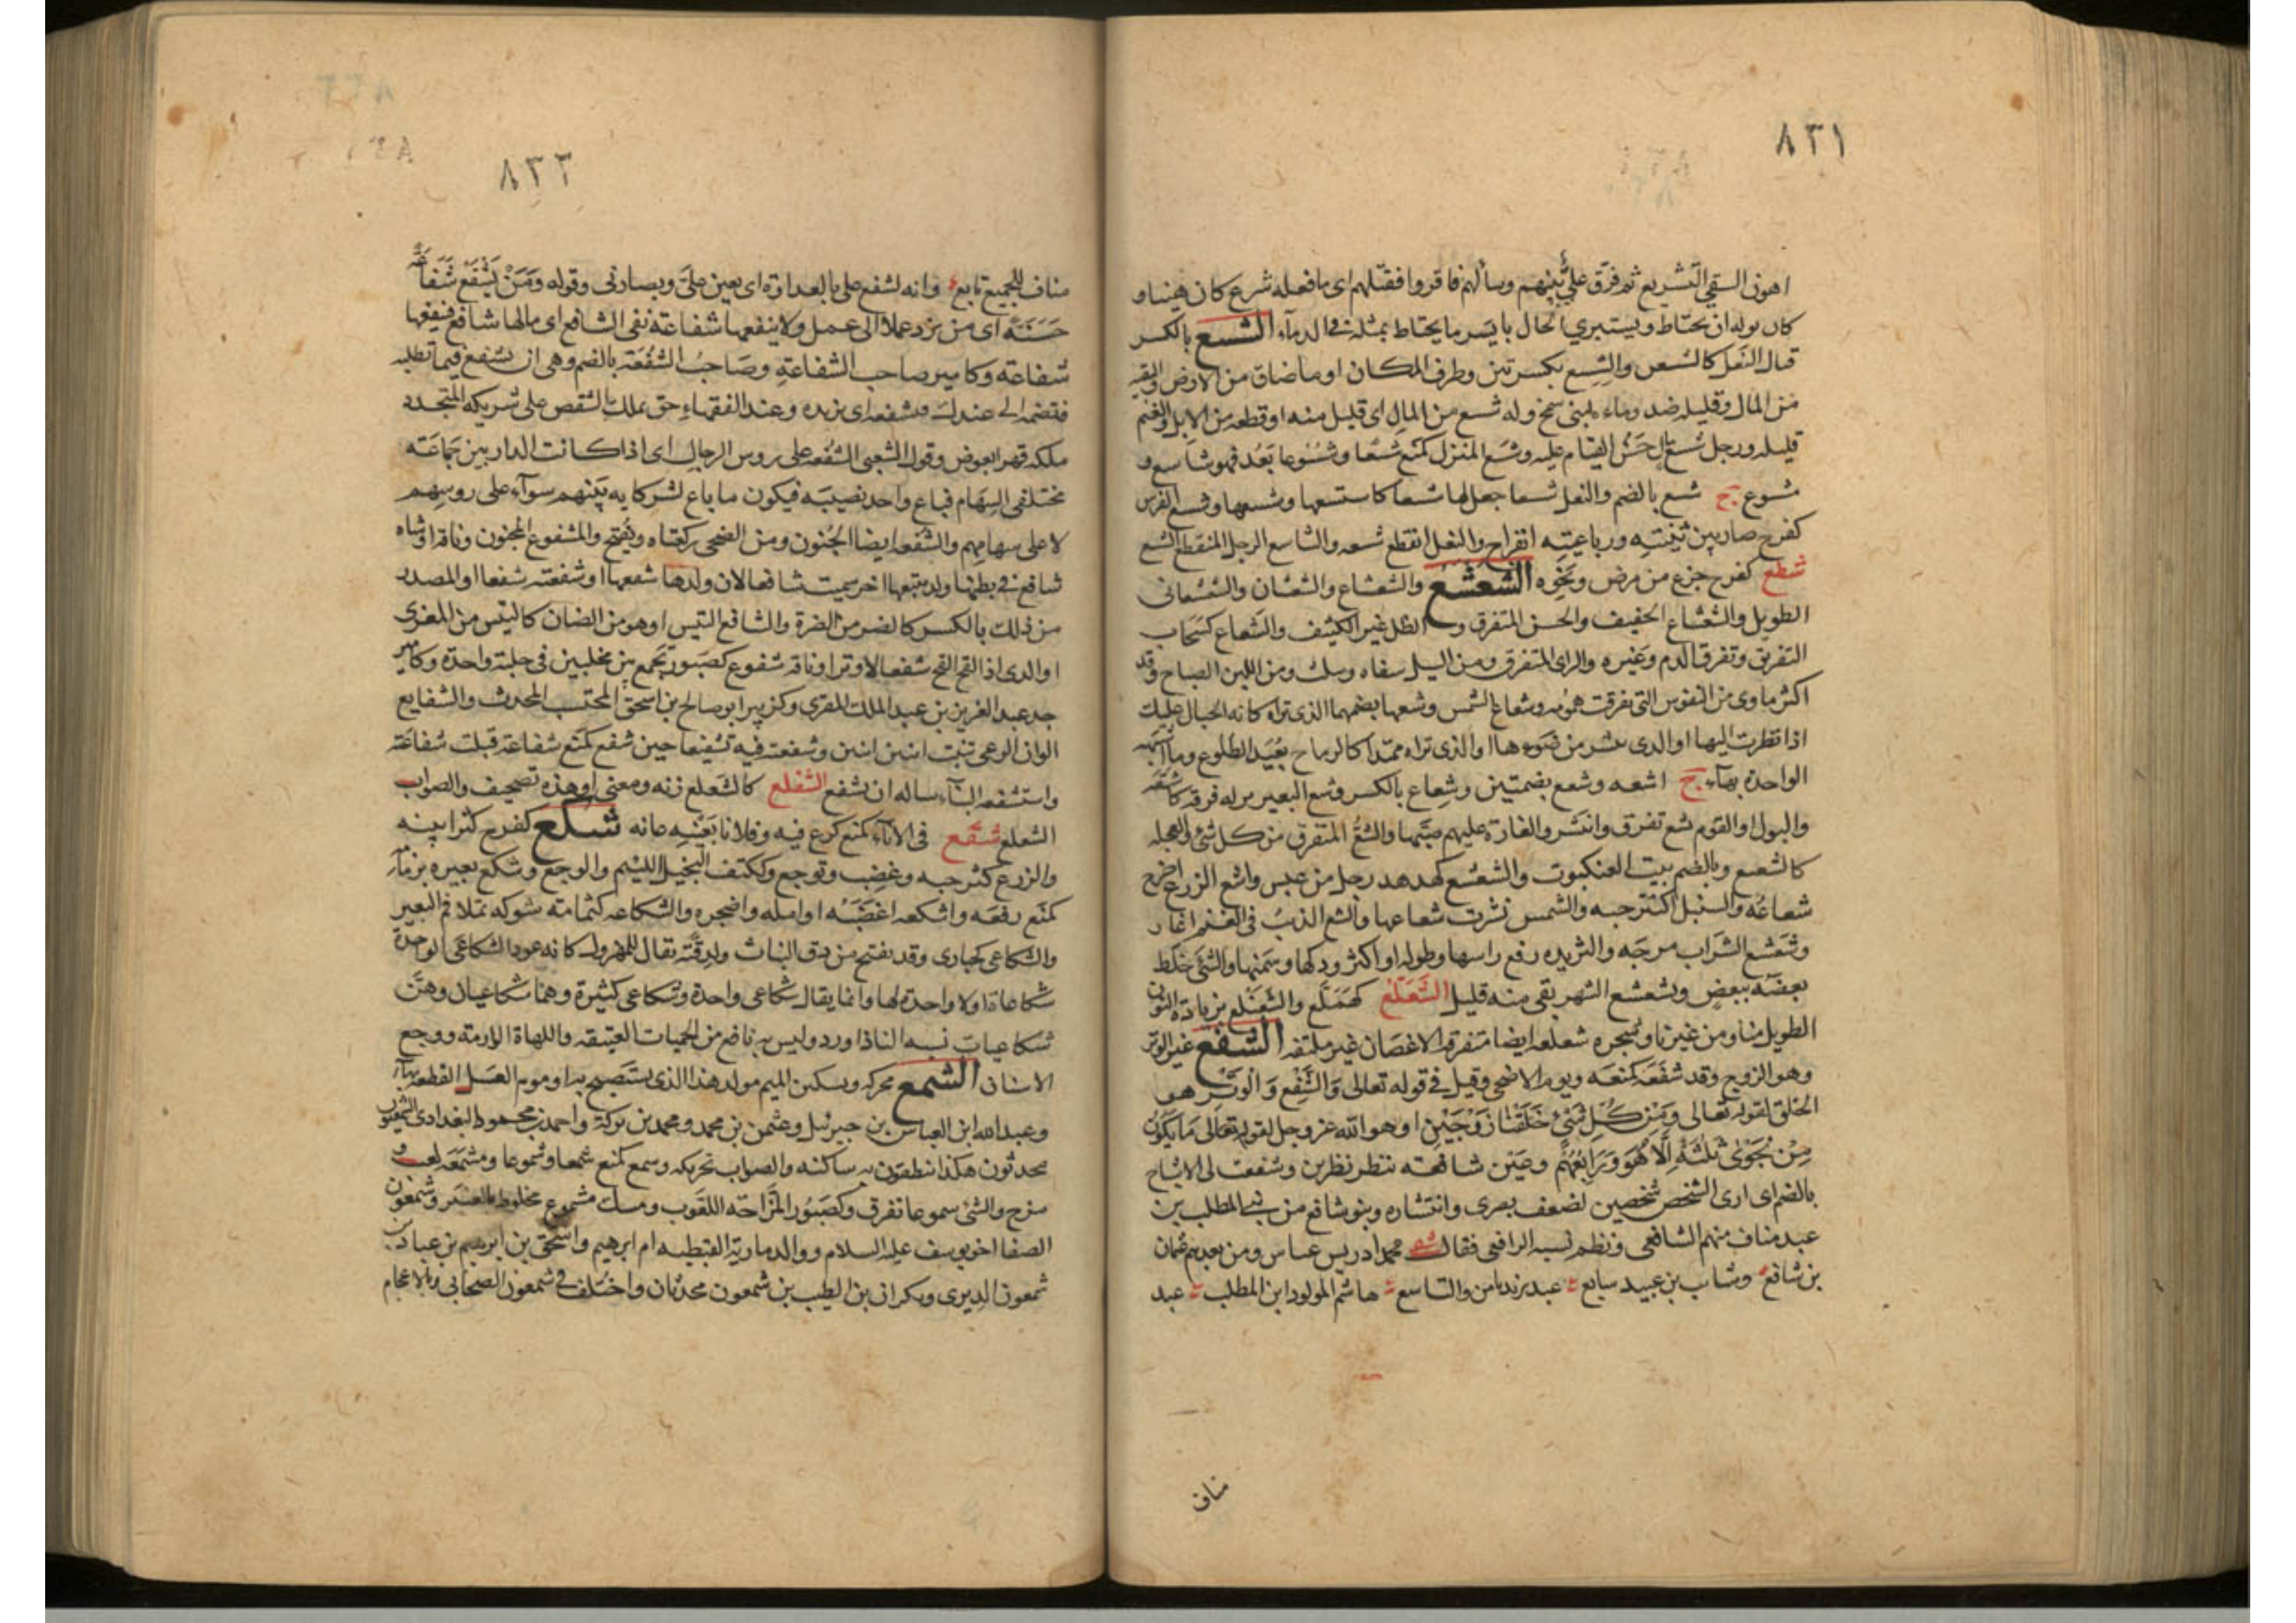 ٨٣١
اهون السقي التشريع ثم فرق علي بينهم وسالهم فاقروا فقتلهم اى ما فعله شرع كان هينا و
كان نوله ان يحتاط ويستبرئ الحال بايسر ما يحتاط بمثله في الدماء الشسع بالكسر
قبال النعل كالشسعن والشسع بكسرتين وطرف المكان او ما ضاق من الارض والبقية
من المال وقليله ضد وماء لبنى شمخ وله شسع من المال اى قليل منه او قطعه من الابل والغنم
قليله ورجل شسع مال حسن القيام عليه وشسع المنزل كمنع شسعا وشسوعا بعد فهو شاسع و
شسوع ج شسع بالضم والنعل شسعا جعل لها شسعا كاشسعها وشسعها وشسع الفرس
كفرح صار بين ثنيته ورباعيته انفراج والنعل انقطع شسعه والشاسع الرجل المنقطع الشسع
شطع كفرح جزع من مرض ونحوه الشعشع والشعشاع والشعشان والشعشعانى
الطويل والشعشاع الخفيف والحسن المتفرق و الظل غير الكثيف والشعاع كسحاب
التفريق وتفرق الدم وغيره والراى المتفرق ومن السنبل سفاه و ومن اللبن الضياح وقد
من النفوس التى تفرقت همومه وشعاع الشمس وشعها بضمهما الذى تراه كانه الحبال مقبلة عليك
اذا نظرت اليها او الذى ينتشر من ضوءها او الذى تراه ممتدا كالرماح بعيد الطلوع وما اشبهه
الواحدة بهاء ج اشعه وشعع بضمتين وشعاع بالكسر وشع البعير بوله فرقه كاشعه
والبول او القوم شع تفرق وانتشر والغارة عليهم صبها والشع المتفرق من كل شئ والعجله
كالشعيع وبالضم بيت العنكبوت والشعشع كهدهد رجل من عبس واشع الزرع اخرج
شعاعه والسنبل اكتنز حبه والشمس نشرت شعاعها وانشع الذئب فى الغنم اغار
وشعشع الشراب مزجه والثريده رفع راسها وطوله او اكثر ودكها وسمنها والشئ خلط
بعضه ببعض وتشعشع الشهر بقى منه قليل الشعلع كهملع والشعنلع بزيادة النون
الطويل منا ومن غيرنا وشجره شعلعه ايضا متفرقه الاغصان غير ملتفه الشفع غير الوتر
وهو الزوج وقد شفعه كمنعه ويوم الاضحى وقيل فى قوله تعالى والشفع والوتر هو
الخلق لقوله تعالى ومن كل شئ خلقنا زوجين او هو الله عز وجل لقوله تعالى ما يكون
من نجوى ثلثة الا هو رابعهم وعين شافعه تنظر نظرين وشفعت لى الاشباح
بالضم اى ارى الشخص شخصين لضعف بصرى وانتشاره وبنو شافع من بنى المطلب بن
عبد مناف منهم الشافعى ونظم نسبه الرافعى فقال محمد ادريس عباس ومن بعدهم عثمان
بن شافع وسائب بن عبيد سابع عبد يزيد ثامن والتاسع هاشم المولود ابن المطلب عبد
مناف
٨٣٢
مناف للجميع تابع وانه لشفع على بالعداوة اى يعين على ويضارنى وقوله ومن يشفع شفاعة
حسنة اى من يزد عملا الى عمل ولا ينفعها شفاعة نفى الشافع اى مالها شافع فينفعها
شفاعة وكامير صاحب الشفاعة وصاحب الشفعة بالضم وهى ان تشفع فيما تطلبه
فتضمه الى عندك فتشفعه اى تزيده وعند الفقهاء حق تملك الشقص على شريكه المتجدد
ملكه قهرا بعوض وقول الشعبى الشفعه على روس الرجال اى اذا كانت الدار بين جماعة
مختلفى السهام فباع واحد نصيبه فيكون ما باع لشركايه بينهم سوآء على روسهم
لا على سهامهم والشفعه ايضا الجنون ومن الضحى ركعتاه ويفتح والمشفوع المجنون وناقة او شاه
شافع فى بطنها ولد يتبعها اخر سميت شافعا لان ولدها شفعها او شفعته شفعا او المصدر
من ذلك بالكسر كالضر من الضرة والشافع التيس او هو من الضان كالتيس من المعزى
او الذى اذا القح القح شفعا لا وترا وناقه شفوع كصبور تجمع بين محلبين فى حلبة واحدة وكامير
جد عبد العزيز بن عبد الملك المقرى وكزبير ابو صالح بن اسحق المحتسب المحدث والشفايع
الوان الرعى تنبت اثنين اثنين وشفعته فيه تشفيعا حين شفع كمنع شفاعة قبلت شفاعته
واستشفعه الينا ساله ان يشفع الشفلع كالشعلع زنه ومعنى او هذه تصحيف والصواب
الشعلع شقع فى الاناء كمنع كرع فيه وفلانا بعينه عانه شكع كفرح كثر انينه
والزرع كثر حبه وغضب وتوجع وككتف البخيل اللئيم والوجع وشكع بعيره بزمامه
كمنع رفعه واشكعه اغضبه او امله واضجره والشكاعه كثمامه شوكه تملا فم البعير
والشكاعى كحبارى وقد يفتح من دق النبات ولدقته يقال للمهزول كانه عود الشكاعى الواحدة
شكاعاة او لا واحدة لها وانما يقال شكاعى واحدة وشكاعى كثيرة وهما شكاعيان وهن
شكاعيات تشبه الباذاورد وليس به نافع من الحميات العتيقه واللهاة الوارمه ووجع
الاسنان الشمع محركه وتسكين الميم مولد هذا الذى يستصبح به او موم العسل القطعه بهاء
وعبد الله ابن العباس بن جبرئيل وعثمن بن محمد ومحمد بن بركة واحمد بن محمود البغدادى الشمعيون
محدثون هكذا ينطقون به ساكنه والصواب تحريكه وشمع كمنع شمعا وشموعا ومشمعه لعب و
مزح والشئ شموعا تفرق وكصبور المزاحه اللعوب ومسك مشموع مخلوط بالعنبر وشمعون
الصفا اخو يوسف عليه السلام ووالد ماريه القبطيه ام ابرهيم واسحق بن ابرهيم بن عباد بن
شمعون الديرى وبكران بن الطيب بن شمعون محدثان واختلف فى شمعون الصحابى وبالاعجام